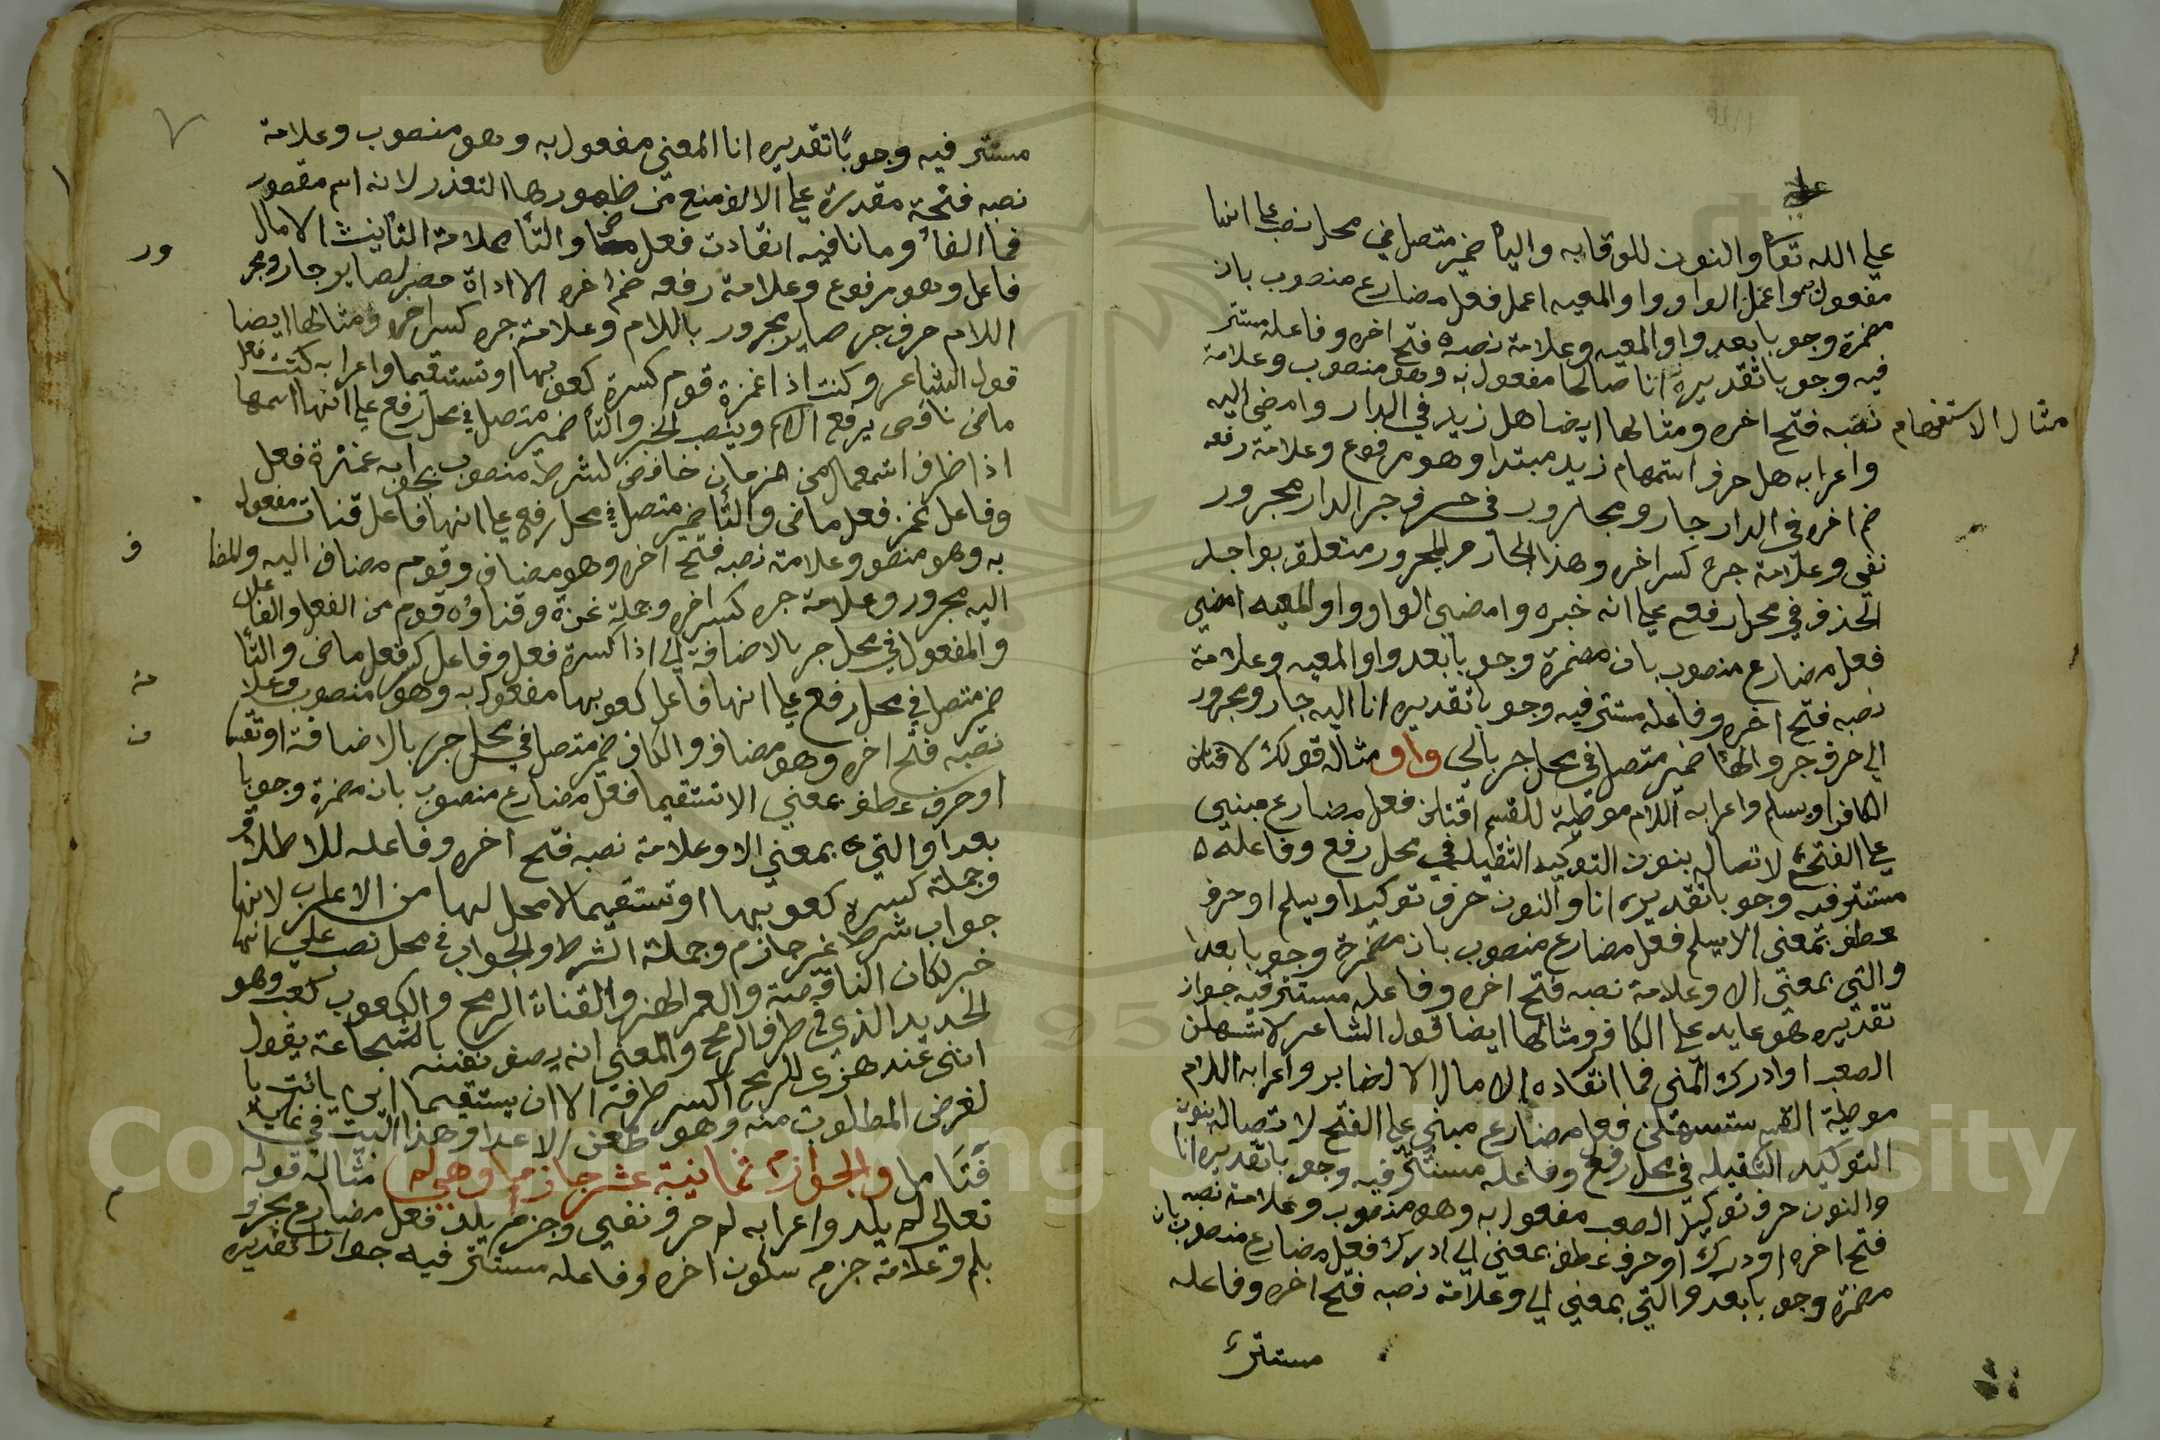 على الله تعا والنون للوقايه والياء ضمير متصل في محل نصب على انها
مفعول به واعمل الواو واو المعيه اعمل فعل مضارع منصوب بان
مضمرة وجوبا بعد واو المعيه وعلامة نصبه فتح اخره وفاعله مستتر
فيه وجوبا تقديره انا صالحا مفعول به وهو منصوب وعلامة
مثال الاستفهام
نصبه فتح اخره ومثالها ايضا هل زيد في الدار وامضي اليه
واعرابه هل حرف استفهام زيد مبتدا وهو مرفوع وعلامة رفعه
ضم اخره في الدار جار ومجرور في حرف جر الدار مجرور
نفي وعلامة جره كسر اخره وهذا الجار والمجرور متعلق بواجب
الحذف في محل رفع على انه خبره وامضي الواو واو المعيه امضي
فعل مضارع منصوب بان مضمرة وجوبا بعد واو المعيه وعلامة
نصبه فتح اخره وفاعله مستتر فيه وجوبا تقديره انا اليه جار ومجرور
الي حرف جر والهاء ضمير متصل في محل جر بالى واو مثاله قولك لاقتلن
الكافر او يسلم واعرابه اللام موطية للقسم اقتلن فعل مضارع مبني
على الفتح لاتصاله بنون التوكيد الثقيله في محل رفع وفاعله
مستتر فيه وجوبا تقديره انا والنون حرف توكيد او يسلم او حرف
عطف بمعنى الا يسلم فعل مضارع منصوب بان مضمرة وجوبا بعد او
والتي بمعنى الا وعلامة نصبه فتح اخره وفاعله مستتر فيه جواز
تقديره هو عايد على الكافر ومثالها ايضا قول الشاعر لاستسهلن
الصعب او ادرك المنى فما انقاده الامال الا لصابر واعرابه اللام
موطية القسم ستسهلن فعل مضارع مبني على الفتح لاتصاله بنون
التوكيد الثقيله في محل رفع وفاعله مستتر فيه وجوبا تقديره انا
والنون حرف توكيد الصعب مفعول به وهو منصوب وعلامة نصبه
فتح اخره او درك او حرف عطف بمعنى الي ادرك فعل مضارع منصوب بان
مضمرة وجوبا بعد و التي بمعنى الي وعلامة نصبه فتح اخره وفاعله
مستتر
٧
مستتر فيه وجوبًا تقديره انا المعنى مفعول به وهو منصوب وعلامة
نصبه فتحة مقدرة على الالف منع من ظهورها التعذر لانه اسم مقصور
فما الفاء وما نافيه انقادت فعل والتاء علامة التانيث الامال
فاعل وهو مرفوع وعلامة رفعه ضم اخره الا اداة حصر لصابر جار ومجر
ور
اللام حرف جر صابر مجرور باللام وعلامة جره كسر اخره ومثالها ايضا
قول الشاعر وكنت اذا غمزة قوم كسرة كعوبها او تستقيما واعرابه كنت فعل
ماضي ناقص يرفع الاسم وينصب الخبر والتاء ضمير متصل في محل رفع على انها اسمها
اذا ظرف من خافض لشرطه منصوب بجوابه غمزة فعل
وفاعل غمز فعل ماضي والتاء ضمير متصل في محل رفع على انها فاعل قنات مفعول
به وهو منصو وعلامة نصبه فتح اخره وهو مضاف وقوم مضاف اليه والمضا
ف
اليه مجرور وعلامة جره كسر اخره وجملة غمزة وقناوه قوم من الفعل والفاعل
والمفعول في محل جر بالاضافة الى اذا كسرة فعل وفاعل كسر فعل ماضي والتاء
ضمير متصل في محل رفع على انها فاعل كعوبها مفعول به وهو منصوب وعلا
مة
نصبه فتح اخره وهو مضاف والكاف ضمير متصل في محل جر بالاضافة او تقيما
او حرف عطف بمعنى الا تستقيما فعل مضارع منصوب بان مضمرة وجوبا
بعد او التي بمعنى الا وعلامة نصبه فتح اخره وفاعله للاطلاق
وجملة كسرة كعوبها او تستقيما لا محل لها من الاعراب لانها
جواب شرط غير جازم وجملة الشرط والجواب في محل نصب على انها
خبر لكان الناقصة والغمز الهز والقناة الرمح والكعوب كعب وهو
الحديد الذي في طرف الرمح والمعنى انه يصف نفسه بالشجاعة يقول
انني عند هزي للرمح اكسر طرفه الا ان يستقيما اي يانت با
لغرض المطلوب منه وهو طعن الاعدا وهذا البيت في غاية
فتامل والجوازم ثمانية عشر جازما وهي لم مثاله قوله
تعالى لم يلد واعرابه لم حرف نفي وجزم يلد فعل مضارع مجزو
م
بلم وعلامة جزمه سكون اخره وفاعله مستتر فيه جوازا تقديره
King Saud University